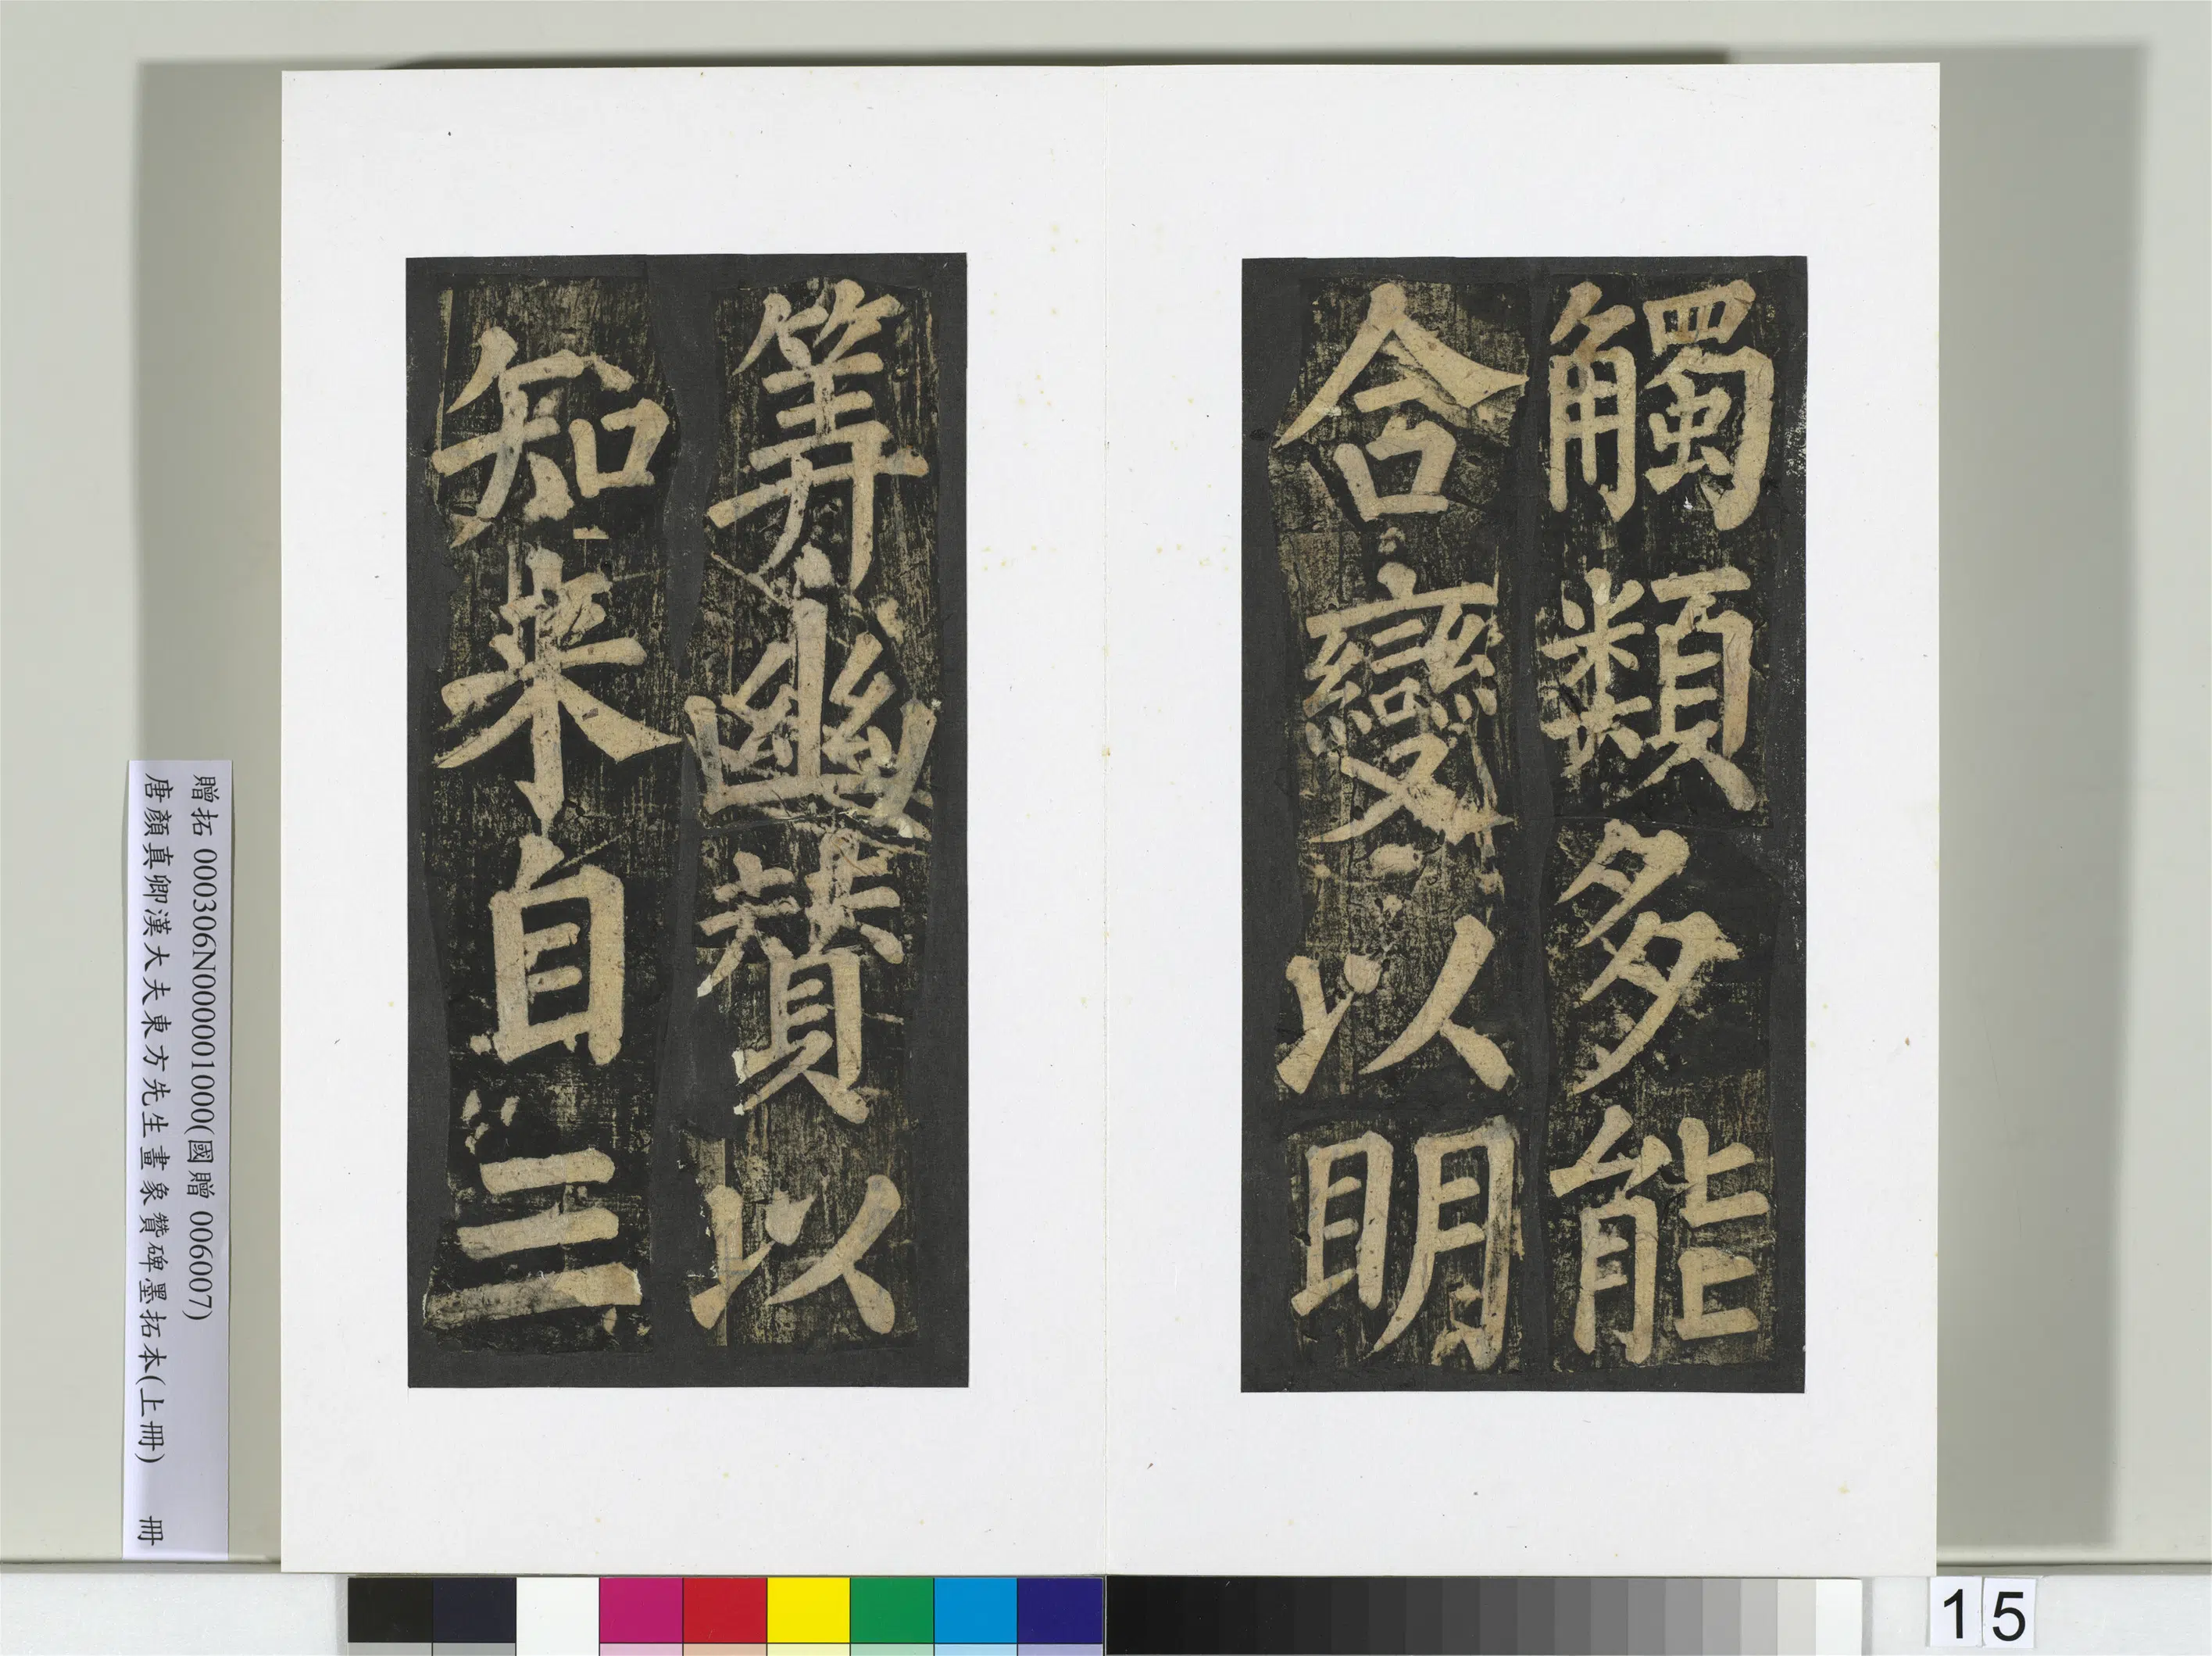 觸類多能
合變以明
筭幽賛以
知来自三
贈拓 000306N000001000(國贈 006007)
唐顏真卿漢大夫東方先生畫象贊碑墨拓本(上冊) 冊
15